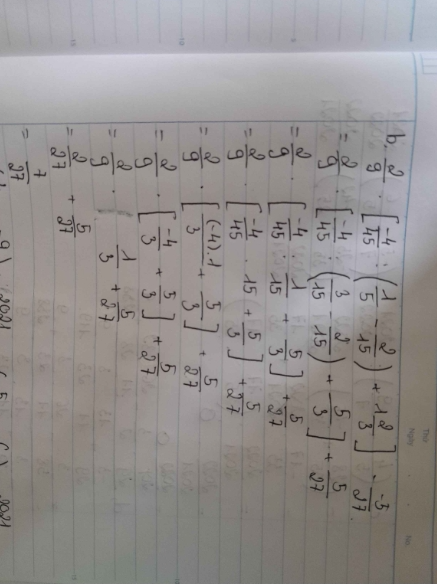 Thứ
Ngày
No
b. 2/9 . [-4/45 : (1/5 - 2/15) + 1 2/3] - -5/27
= 2/9 . [-4/45 : (3/15 - 2/15) + 5/3] + 5/27
= 2/9 . [-4/45 : 1/15 + 5/3] + 5/27
= 2/9 . [-4/45 . 15 + 5/3] + 5/27
= 2/9 . [(-4).1/3 + 5/3] + 5/27
= 2/9 . [-4/3 + 5/3] + 5/27
= 2/9 . 1/3 + 5/27
= 2/27 + 5/27
= 7/27